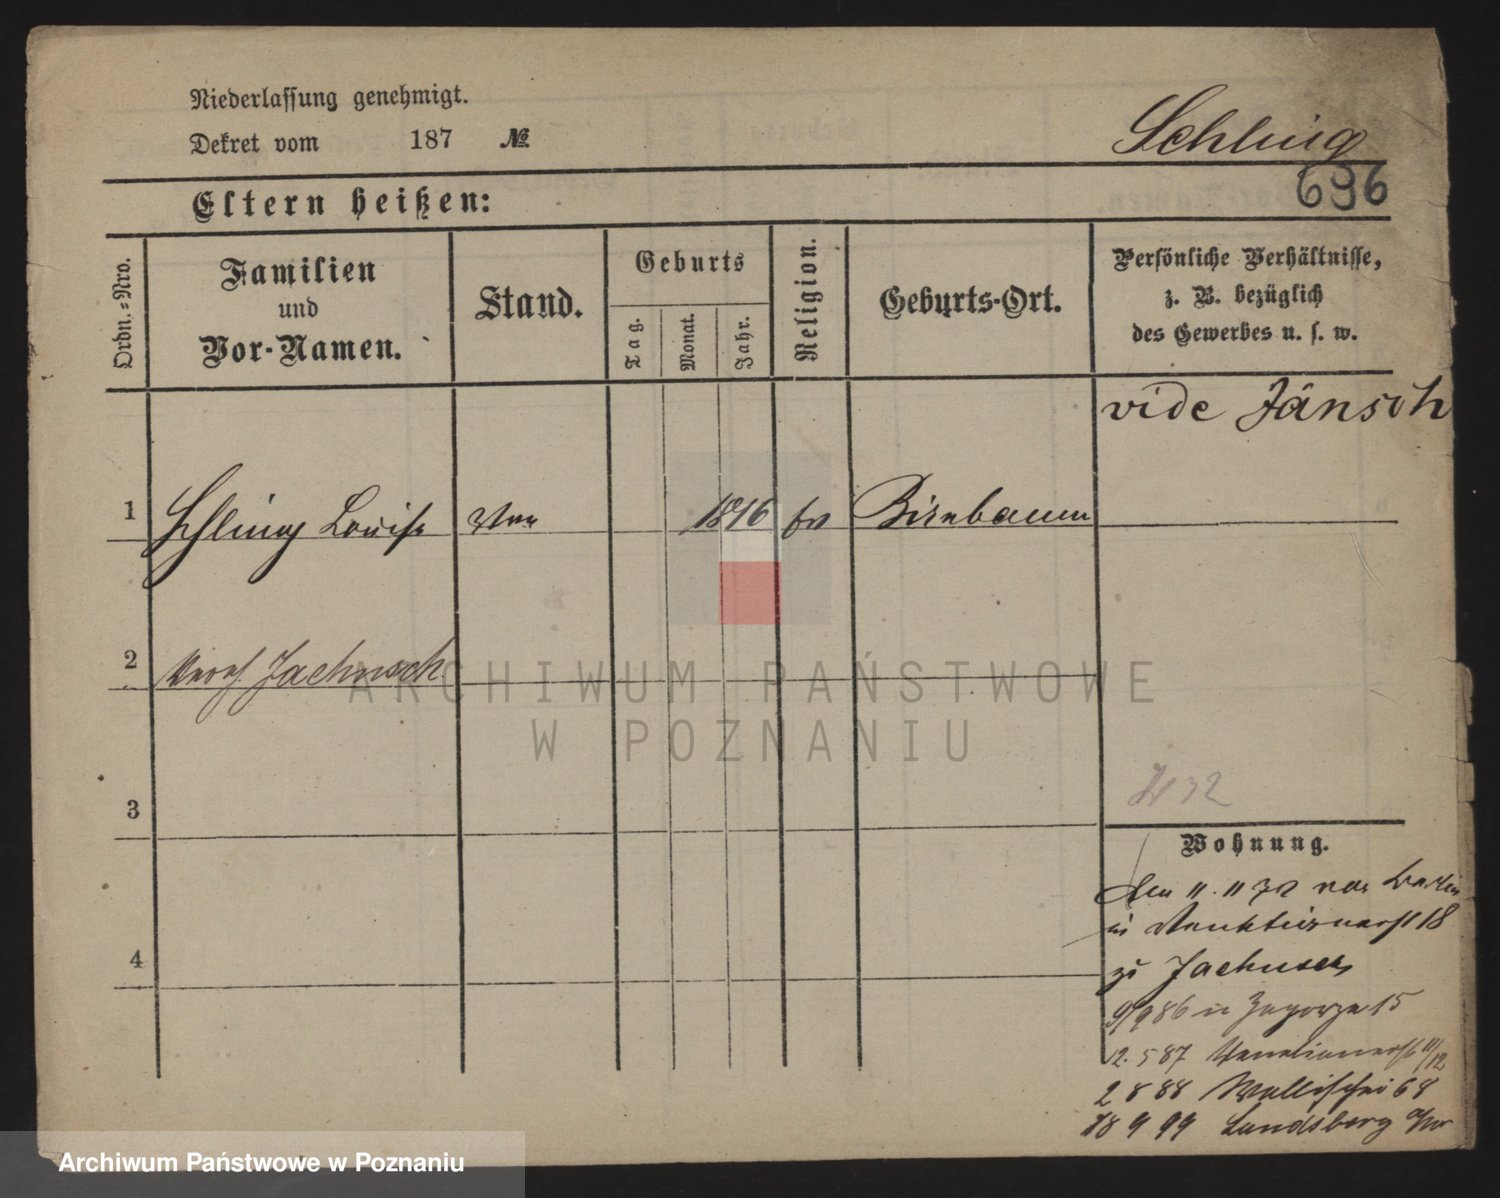 Niederlassung genehmigt.
Dekret vom 187 №
Schling
696
Eltern heißen:
Ordn.-Nro.
Familien
und
Vor-Namen.
Stand.
Geburts
Tag.
Monat.
Jahr.
Religion.
Geburts-Ort.
Persönliche Verhältnisse,
z. B. bezüglich
des Gewerbes u. s. w.
vide Jänsch
1 Schling Louise 1816 ev Birnbaum
2 Jachnsch
3
4
Wohnung.
den 11. 11 72 von Berlin
in 18
zu
9/9 86 in Zagorze 15
12. 5 87 11/12
2 8 88 Wallischei 68
18 9 99 Landsberg a/W
ARCHIWUM PAŃSTWOWE
W POZNANIU
Archiwum Państwowe w Poznaniu